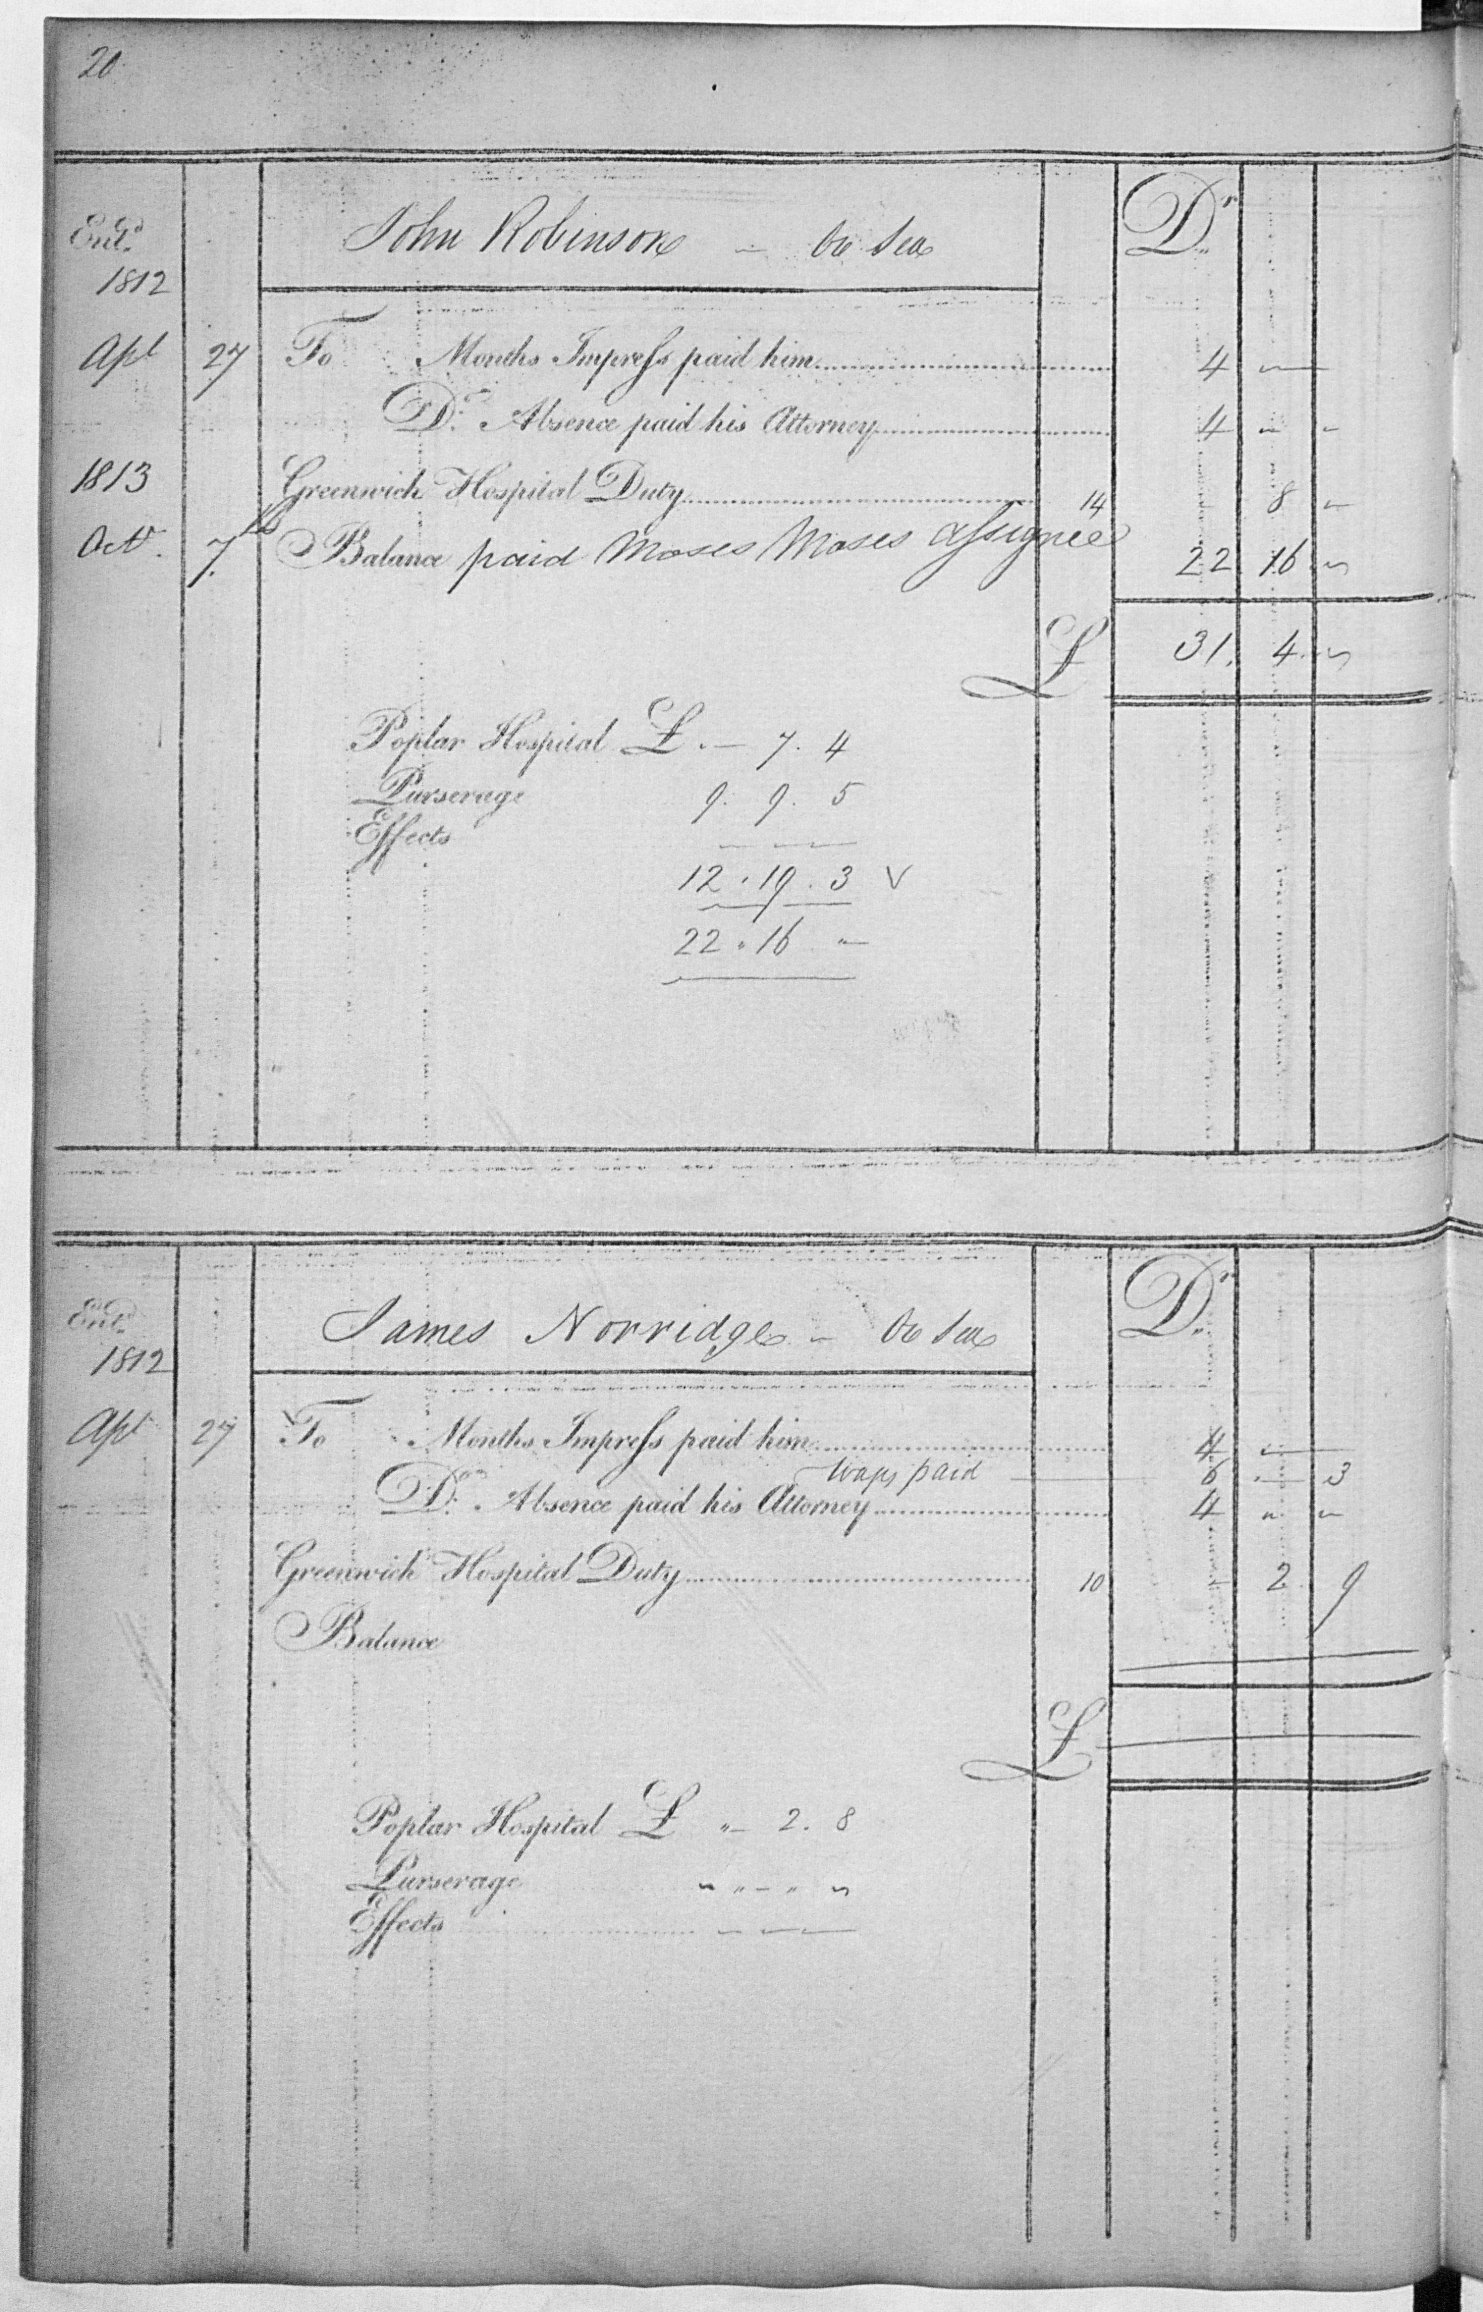 20
Entd John Robinson - Ord Sea Dr
1812
Apl 27 To Months Impress paid him 4 -
Do. Absence paid his Attorney 4 - -
1813 Greenwich Hospital Duty 14 - 8 -
Oct. 7. Balance paid Moses Moses assignee 22 16 -
£ 31. 4. -
Poplar Hospital £ . - 7. 4
Purserage 9. 9. 5
Effects - - -
12. 19. 3
22. 16 -
Entd James Norridge - Ord Sea Dr
1812
Apl 27 To Months Impress paid him 4 -
Wages paid 6 - 3
Do. Absence paid his Attorney 4 " -
Greenwich Hospital Duty 10 - 2 9
Balance
£
Poplar Hospital £ " - 2. 8
Purserage " " - " "
Effects - - -